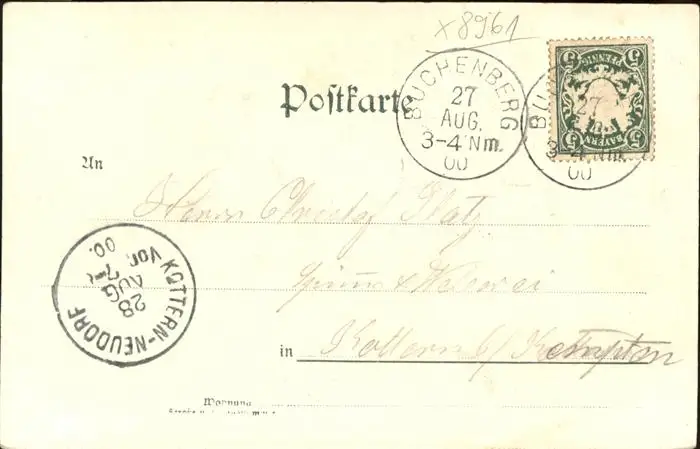 x8961
5 PFENNIG 5
5 BAYERN 5
Postkarte
BUCHENBERG
27
AUG.
3-4 Nm.
00
BU
27
3-4 Nm.
00
An
Herrn Christof Platz
Spinn & Weberei
KOTTERN-NEUDORF
28
AUG
Vor. 7-8
00.
in Kottern b/ Kempten
Wohnung